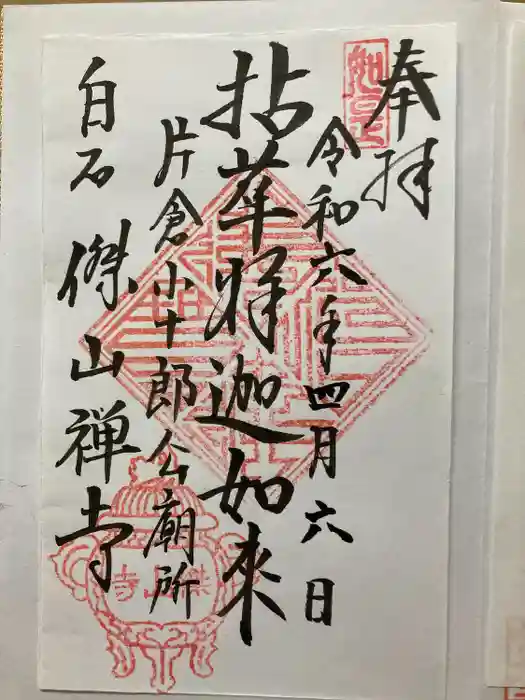 奉拝
如是
令和六年四月六日
拈華釈迦如來
片倉小十郎公廟所
白石 傑山禅寺
傑山寺